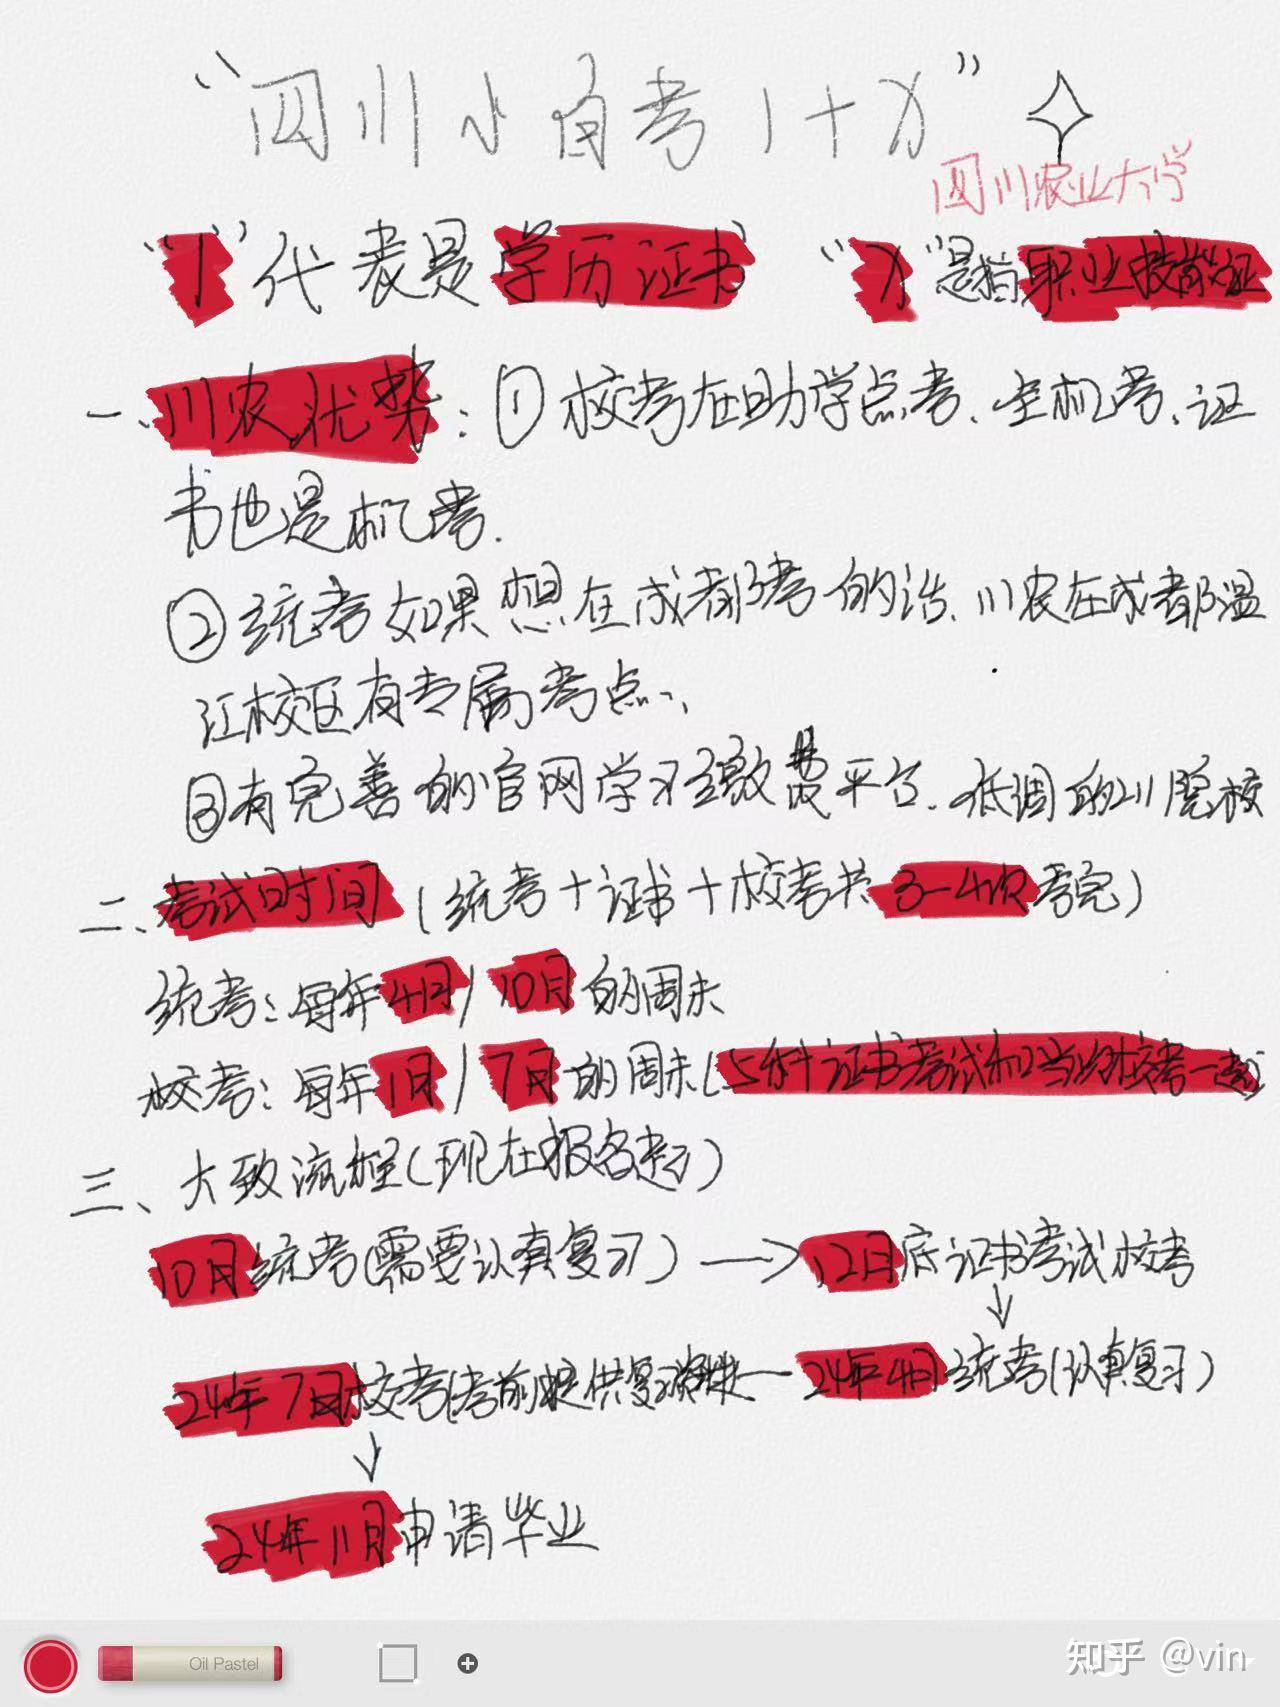 “四川小自考1+X”
四川农业大学
“1”代表是学历证书 “X”是指职业技能证
一、川农优势：①校考在助学点考、全机考、证
书也是机考.
②统考如果想在成都考的话、川农在成都温
江校区有专属考点、
③有完善的官网学习缴费平台、低调的211院校
二、考试时间（统考+证书+校考共3-4次考完）
统考：每年4月/10月的周末
校考：每年1月/7月的周末（证书考试和校考一起）
三、大致流程（现在报名起）
10月统考（需要认真复习）→12月底证书考试校考
↓
24年7月校考（考前提供复习—24年4月统考（认真复习）
↓
24年11月申请毕业
Oil Pastel
知乎 @vin